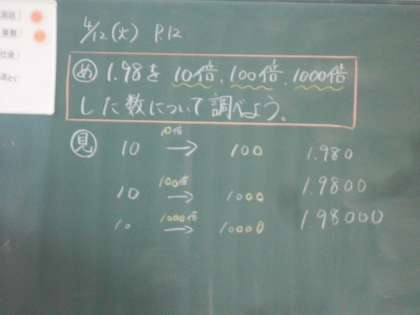 4/12(火) P.12
め 1.98を10倍、100倍、1000倍
した数について調べよう。
見 10 10倍→ 100 1.980
10 100倍→ 1000 1.9800
10 1000倍→ 10000 1.98000